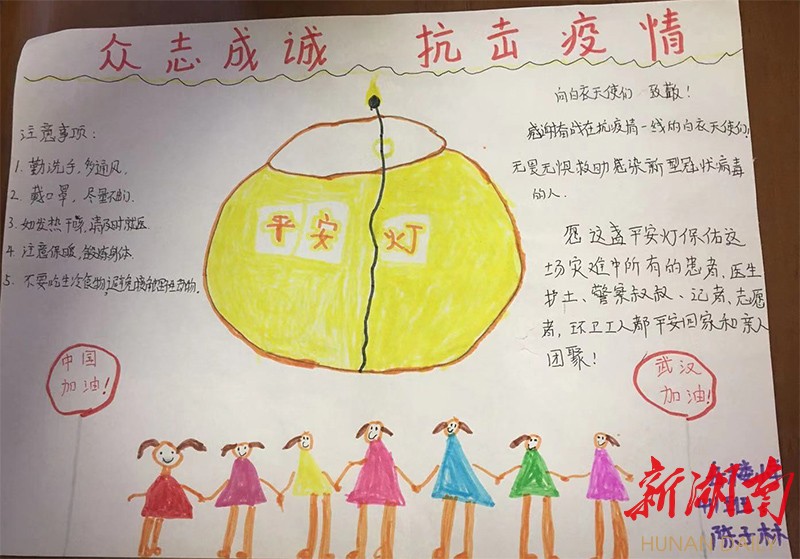 众志成诚 抗击疫情
注意事项:
1. 勤洗手,多通风.
2. 戴口罩,尽量不
3. 如发热干咳,请及时就医.
4. 注意保暖,锻炼身体.
5. 不要吃生冷食物,避免接触
平安灯
向白衣天使们 致敬!
感谢有战在抗疫情一线的白衣天使们,
无畏无惧救助感染新型冠状病毒
的人.
愿这盏平安灯保佑这
场灾难中所有的患者、医生
护士、警察叔叔、记者、志愿
者,环卫工人都平安回家和亲人
团聚!
中国
加油!
武汉
加油!
班
陈子林
新湖南
HUNAN